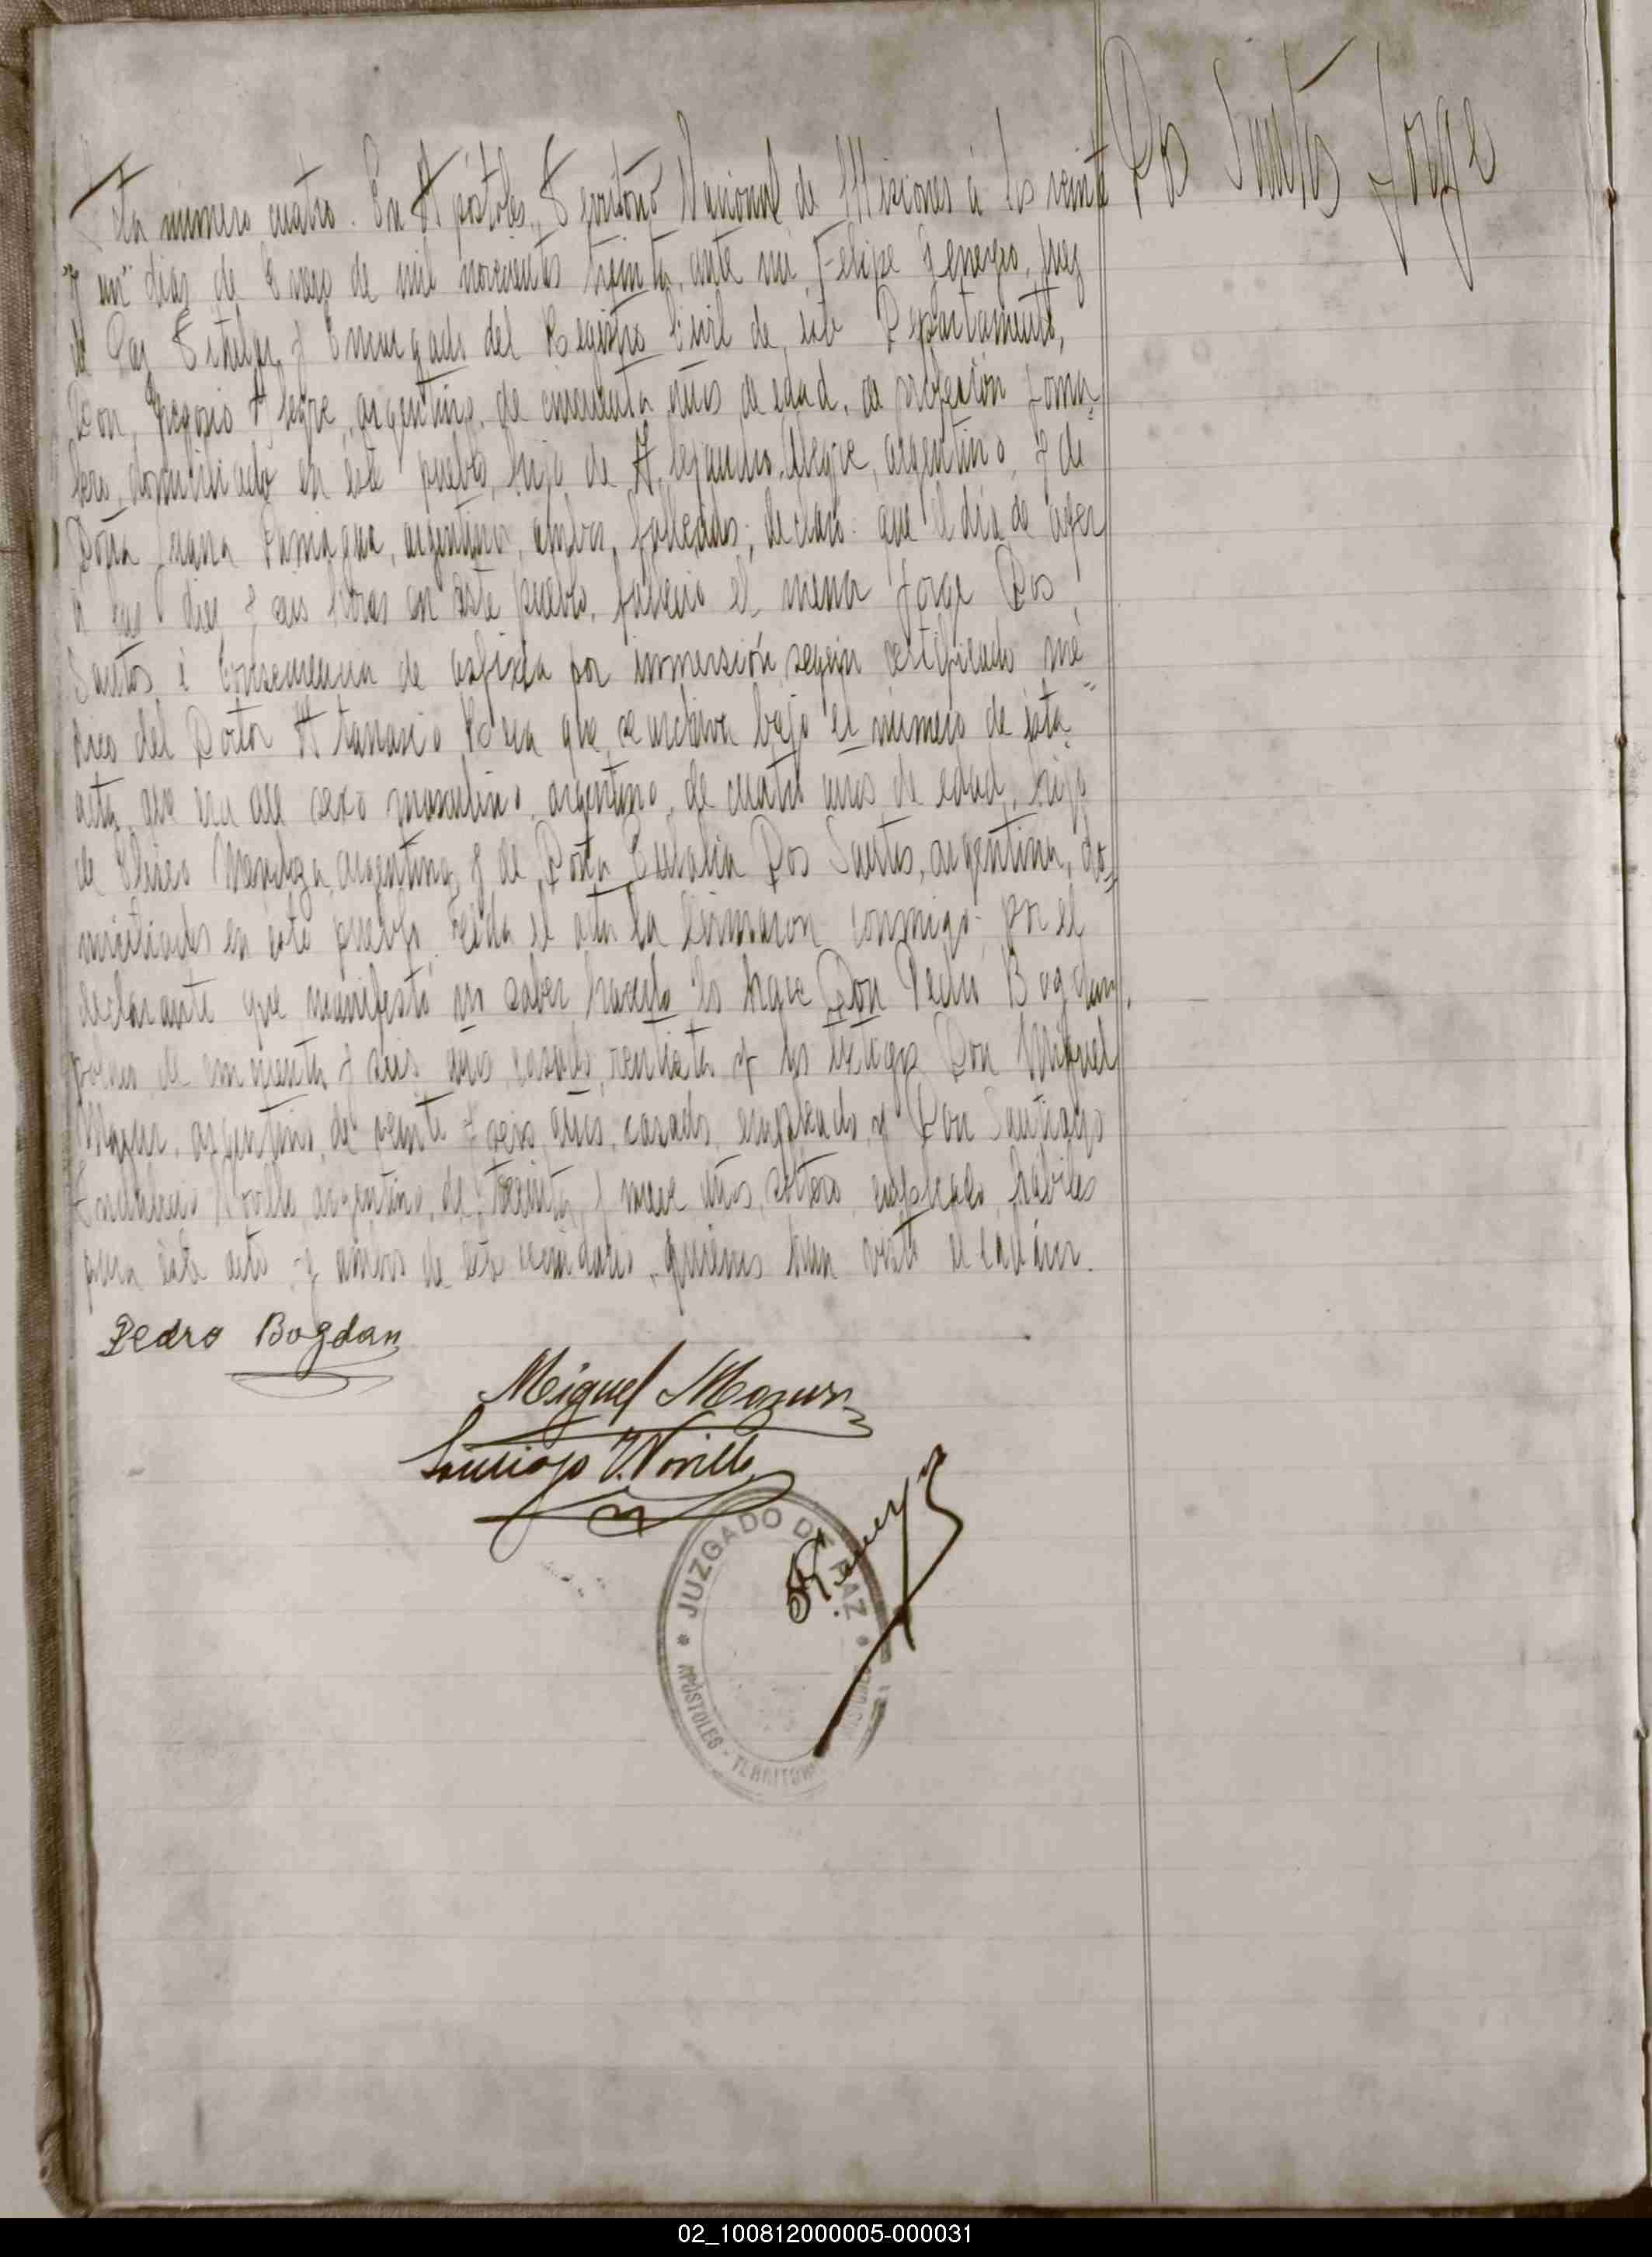 Dos Santos Jorge
Acta número cuatro. En Apóstoles, Territorio Nacional de Misiones á los veinte
y un días de Enero de mil novecientos treinta, ante mi, Felipe Juez
de Paz Titular y Encargado del Registro Civil de este Departamento,
Don Gregorio Alegre, argentino, de cincuenta años de edad, de profesión Jorna-
lero, domiciliado en este pueblo, hijo de Alejandro Alegre, argentino, y de
Doña Juana argentina, ambos fallecidos; declaró: que el día de ayer
á las diez y seis horas en este pueblo, falleció el menor Jorge Dos
Santos á consecuencia de asfixia por inmersión según certificado mé-
dico del Doctor Atanasio que se archiva bajo el número de esta
acta, que era del sexo masculino, argentino, de cuatro años de edad, hijo
de Eliseo Mendoza, argentino, y de Doña Eulalia Dos Santos, argentina, do-
miciliados en este pueblo. Leída el acta la firmaron conmigo, por el
declarante que manifestó no saber hacerlo lo hace Don Pedro Bogdan,
polaco, de cincuenta y seis años, casado, rentista y los testigos Don Miguel
Mazur, argentino, de veinte y seis años, casado, empleado, y Don Santiago
Indalecio Novillo, argentino, de treinta y nueve años, soltero, empleado, hábiles
para este acto y ambos de este vecindario, quienes han visto el cadáver.
Pedro Bogdan
Miguel Mazur
Santiago I. Novillo
JUZGADO DE PAZ
APÓSTOLES - TERRITORIO MISIONES
02_100812000005-000031